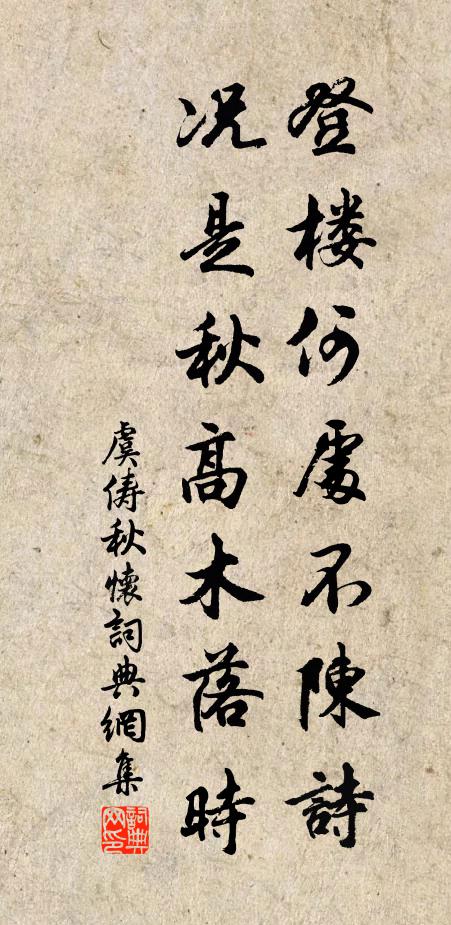 登楼何處不陳詩
况是秋高木落時
虞儔秋懷詞典網集
詞典网印